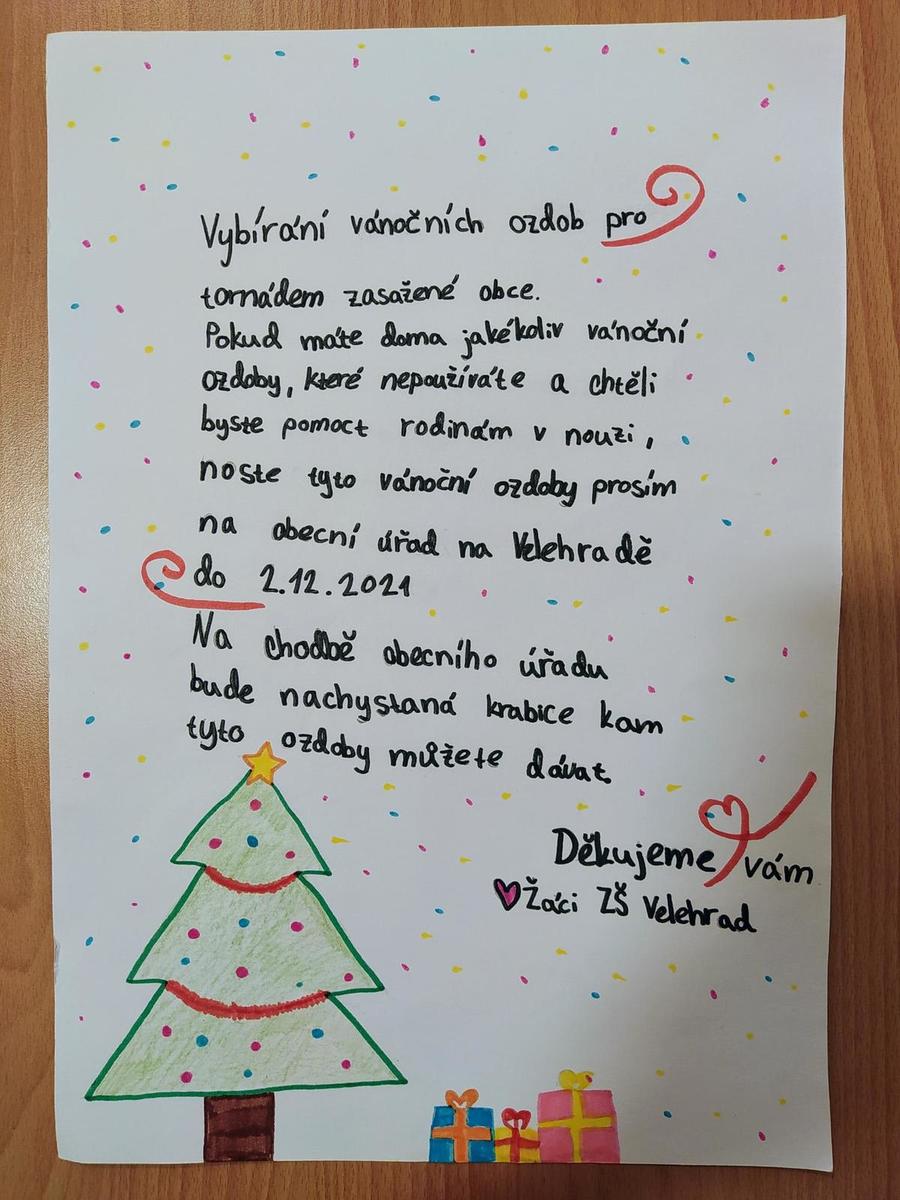 Vybírání vánočních ozdob pro
tornádem zasažené obce.
Pokud máte doma jakékoliv vánoční
ozdoby, které nepoužíváte a chtěli
byste pomoct rodinám v nouzi,
noste tyto vánoční ozdoby prosím
na obecní úřad na Velehradě
do 2.12.2021
Na chodbě obecního úřadu
bude nachystaná krabice kam
tyto ozdoby můžete dávat.
Děkujeme vám
Žáci ZŠ Velehrad